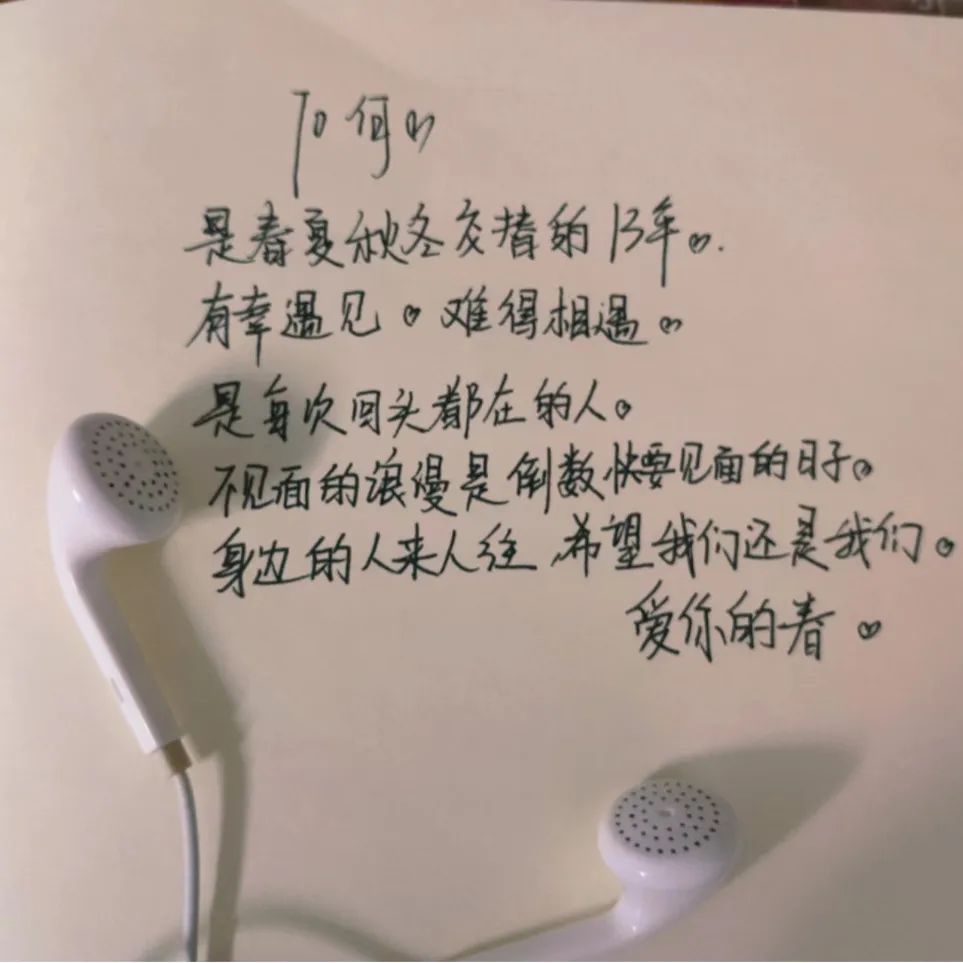 To 何
是春夏秋冬交替的13年。
有幸遇见。难得相遇。
是每次回头都在的人。
不见面的浪漫是倒数快要见面的日子。
身边的人来人往,希望我们还是我们。
爱你的春。